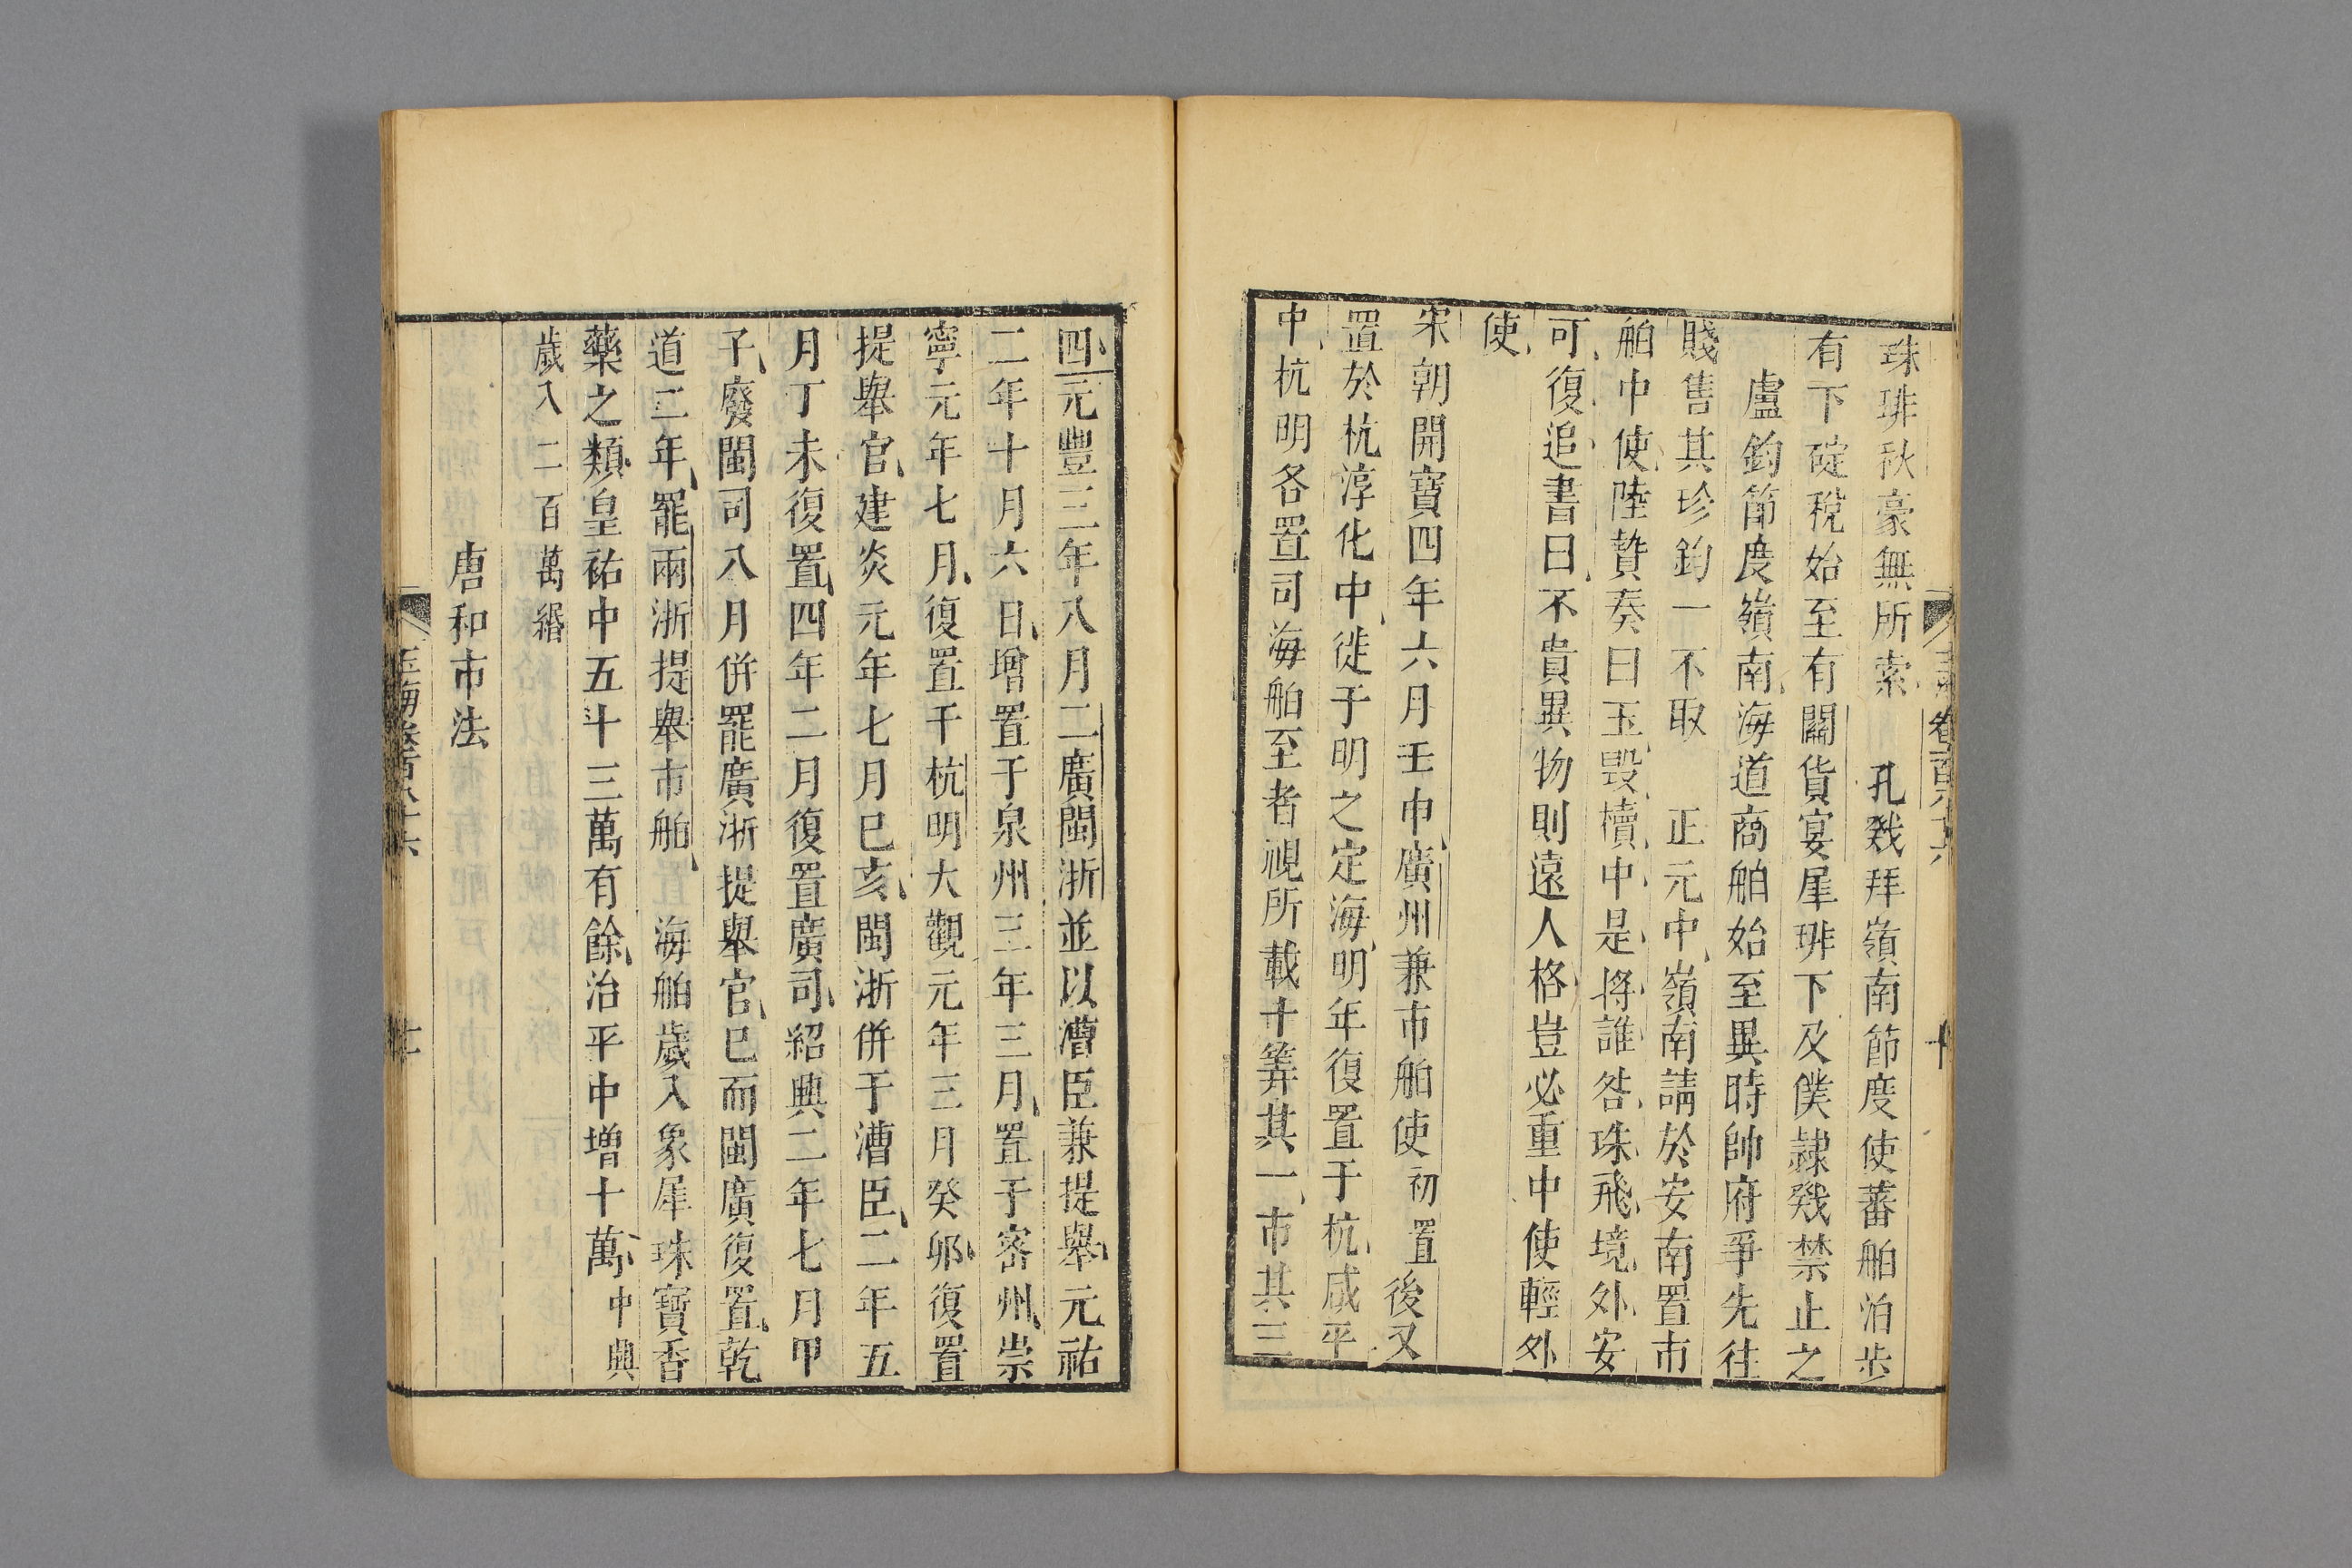 珠琲秋豪無所索　孔戣拜嶺南節度使蕃舶泊步
有下碇稅始至有閱貨宴犀琲下及僕隸戣禁止之
盧鈞節度嶺南海道商舶始至異時帥府爭先往
賤售其珍鈞一不取　正元中嶺南請於安南置市
舶中使陸贄奏曰玉毀櫝中是將誰咎珠飛境外安
可復追書曰不貴異物則遠人格豈必重中使輕外
使
宋朝開寶四年六月壬申廣州兼市舶使初置後又
置於杭淳化中徙于明之定海明年復置于杭咸平
中杭明各置司海舶至者視所載十筭其一市其三
四元豐三年八月二廣閩浙並以漕臣兼提舉元祐
二年十月六日增置于泉州三年三月置于密州崇
寧元年七月復置于杭明大觀元年三月癸卯復置
提舉官建炎元年七月巳亥閩浙併于漕臣二年五
月丁未復置四年二月復置廣司紹興二年七月甲
子廢閩司八月併罷廣浙提舉官巳而閩廣復置乾
道二年罷兩浙提舉市舶　海舶歲入象犀珠寶香
藥之類皇祐中五十三萬有餘治平中增十萬中興
歲入二百萬緡
唐和市法